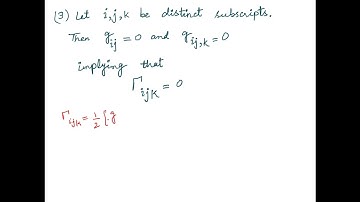 (3) Let i, j, k be distinct subscripts.
Then g_ij = 0 and g_ij,k = 0
implying that
Γ_ijk = 0
Γ_ijk = 1/2 { g